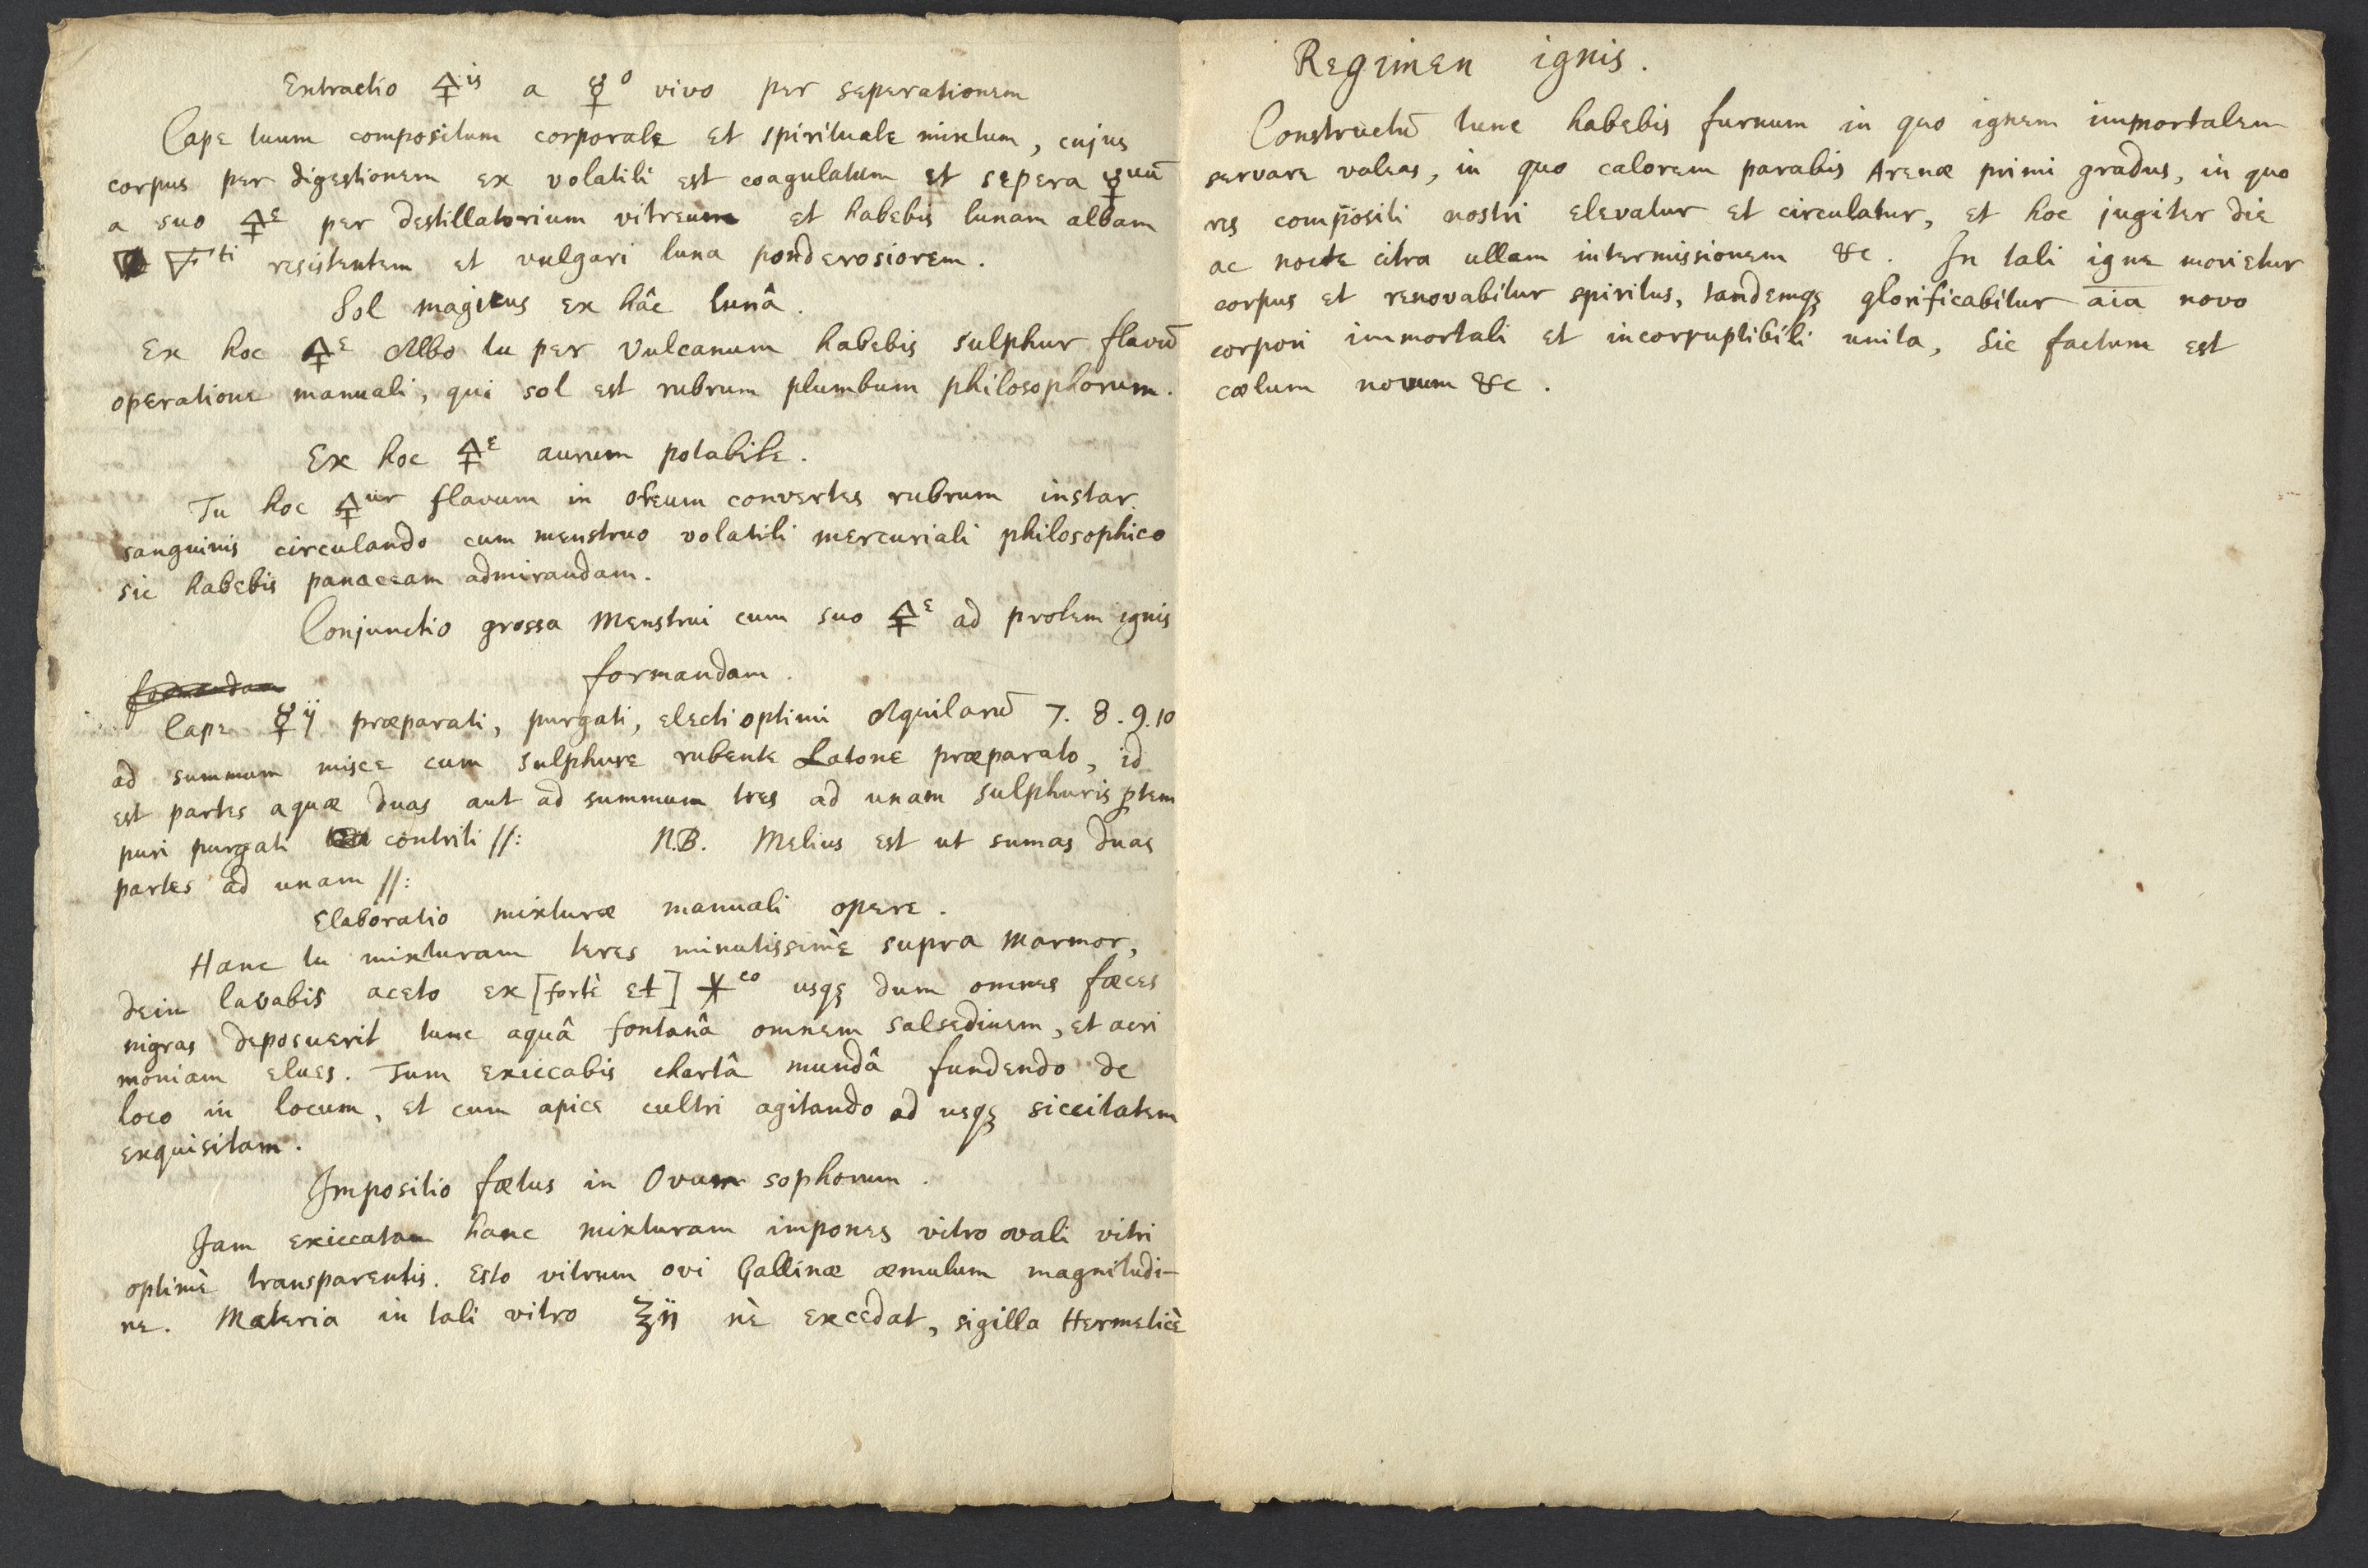 Extractio 🜍is a ☿o vivo per seperationem
Cape tuum compositum corporale et spirituale mixtum, cujus
corpus per digestionem ex volatili est coagulatum et sepera ☿uū
a suo 🜍e per destillatorium vitreum et habebis lunam albam
🜄ti resistentem et vulgari luna ponderosiorem.
Sol magicus ex hâc lunâ.
Ex hoc 🜍e Albo tu per Vulcanum habebis sulphur flavū
operatione manuali, qui sol est rubrum plumbum philosophorum.
Ex hoc 🜍e aurum potabile.
Tu hoc 🜍ur flavum in oleum convertes rubrum instar
sanguinis circulando cum menstruo volatili mercuriali philosophico
sic habebis panaceam admirandam.
Conjunctio grossa Menstrui cum suo 🜍e ad prolem ignis
formandam.
formandam
Cape ☿ij præparati, purgati, electi optimi Aquilarū 7. 8. 9. 10
ad summum misce cum sulphure rubente Latone præparato, id
est partes aquæ duas aut ad summum tres ad unam sulphuris ptem
puri purgati contriti //: N.B. Melius est ut sumas duas
partes ad unam //:
Elaboratio mixturæ manuali opere.
Hanc tu mixturam teres minutissimè supra marmor,
dein lavabis aceto ex [fortè et] ⚹co usqꝫ dum omnes fæces
nigras deposuerit tunc aquâ fontanâ omnem salsedinem, et acri
moniam elues. Tum exiccabis chartâ mundâ fundendo de
loco in locum, et cum apice cultri agitando ad usqꝫ siccitatem
exquisitam.
Impositio fœtus in Ovum sophorum.
Jam exiccatam hanc mixturam impones vitro ovali vitri
optimè transparentis. Esto vitrum ovi Gallinæ æmulum magnitudi-
ne. Materia in tali vitro ℥ij nè excedat, sigilla Hermeticè
Regimen ignis.
Constructū tunc habebis furnum in quo ignem immortalem
servare valeas, in quo calorem parabis Arenæ primi gradus, in quo
res compositi nostri elevatur et circulatur, et hoc jugiter die
ac nocte citra ullam intermissionem &c. In tali igne morietur
corpus et renovabitur spiritus, tandemqꝫ glorificabitur aīa novo
corpori immortali et incorruptibili unita, Sic factum est
cœlum novum &c.